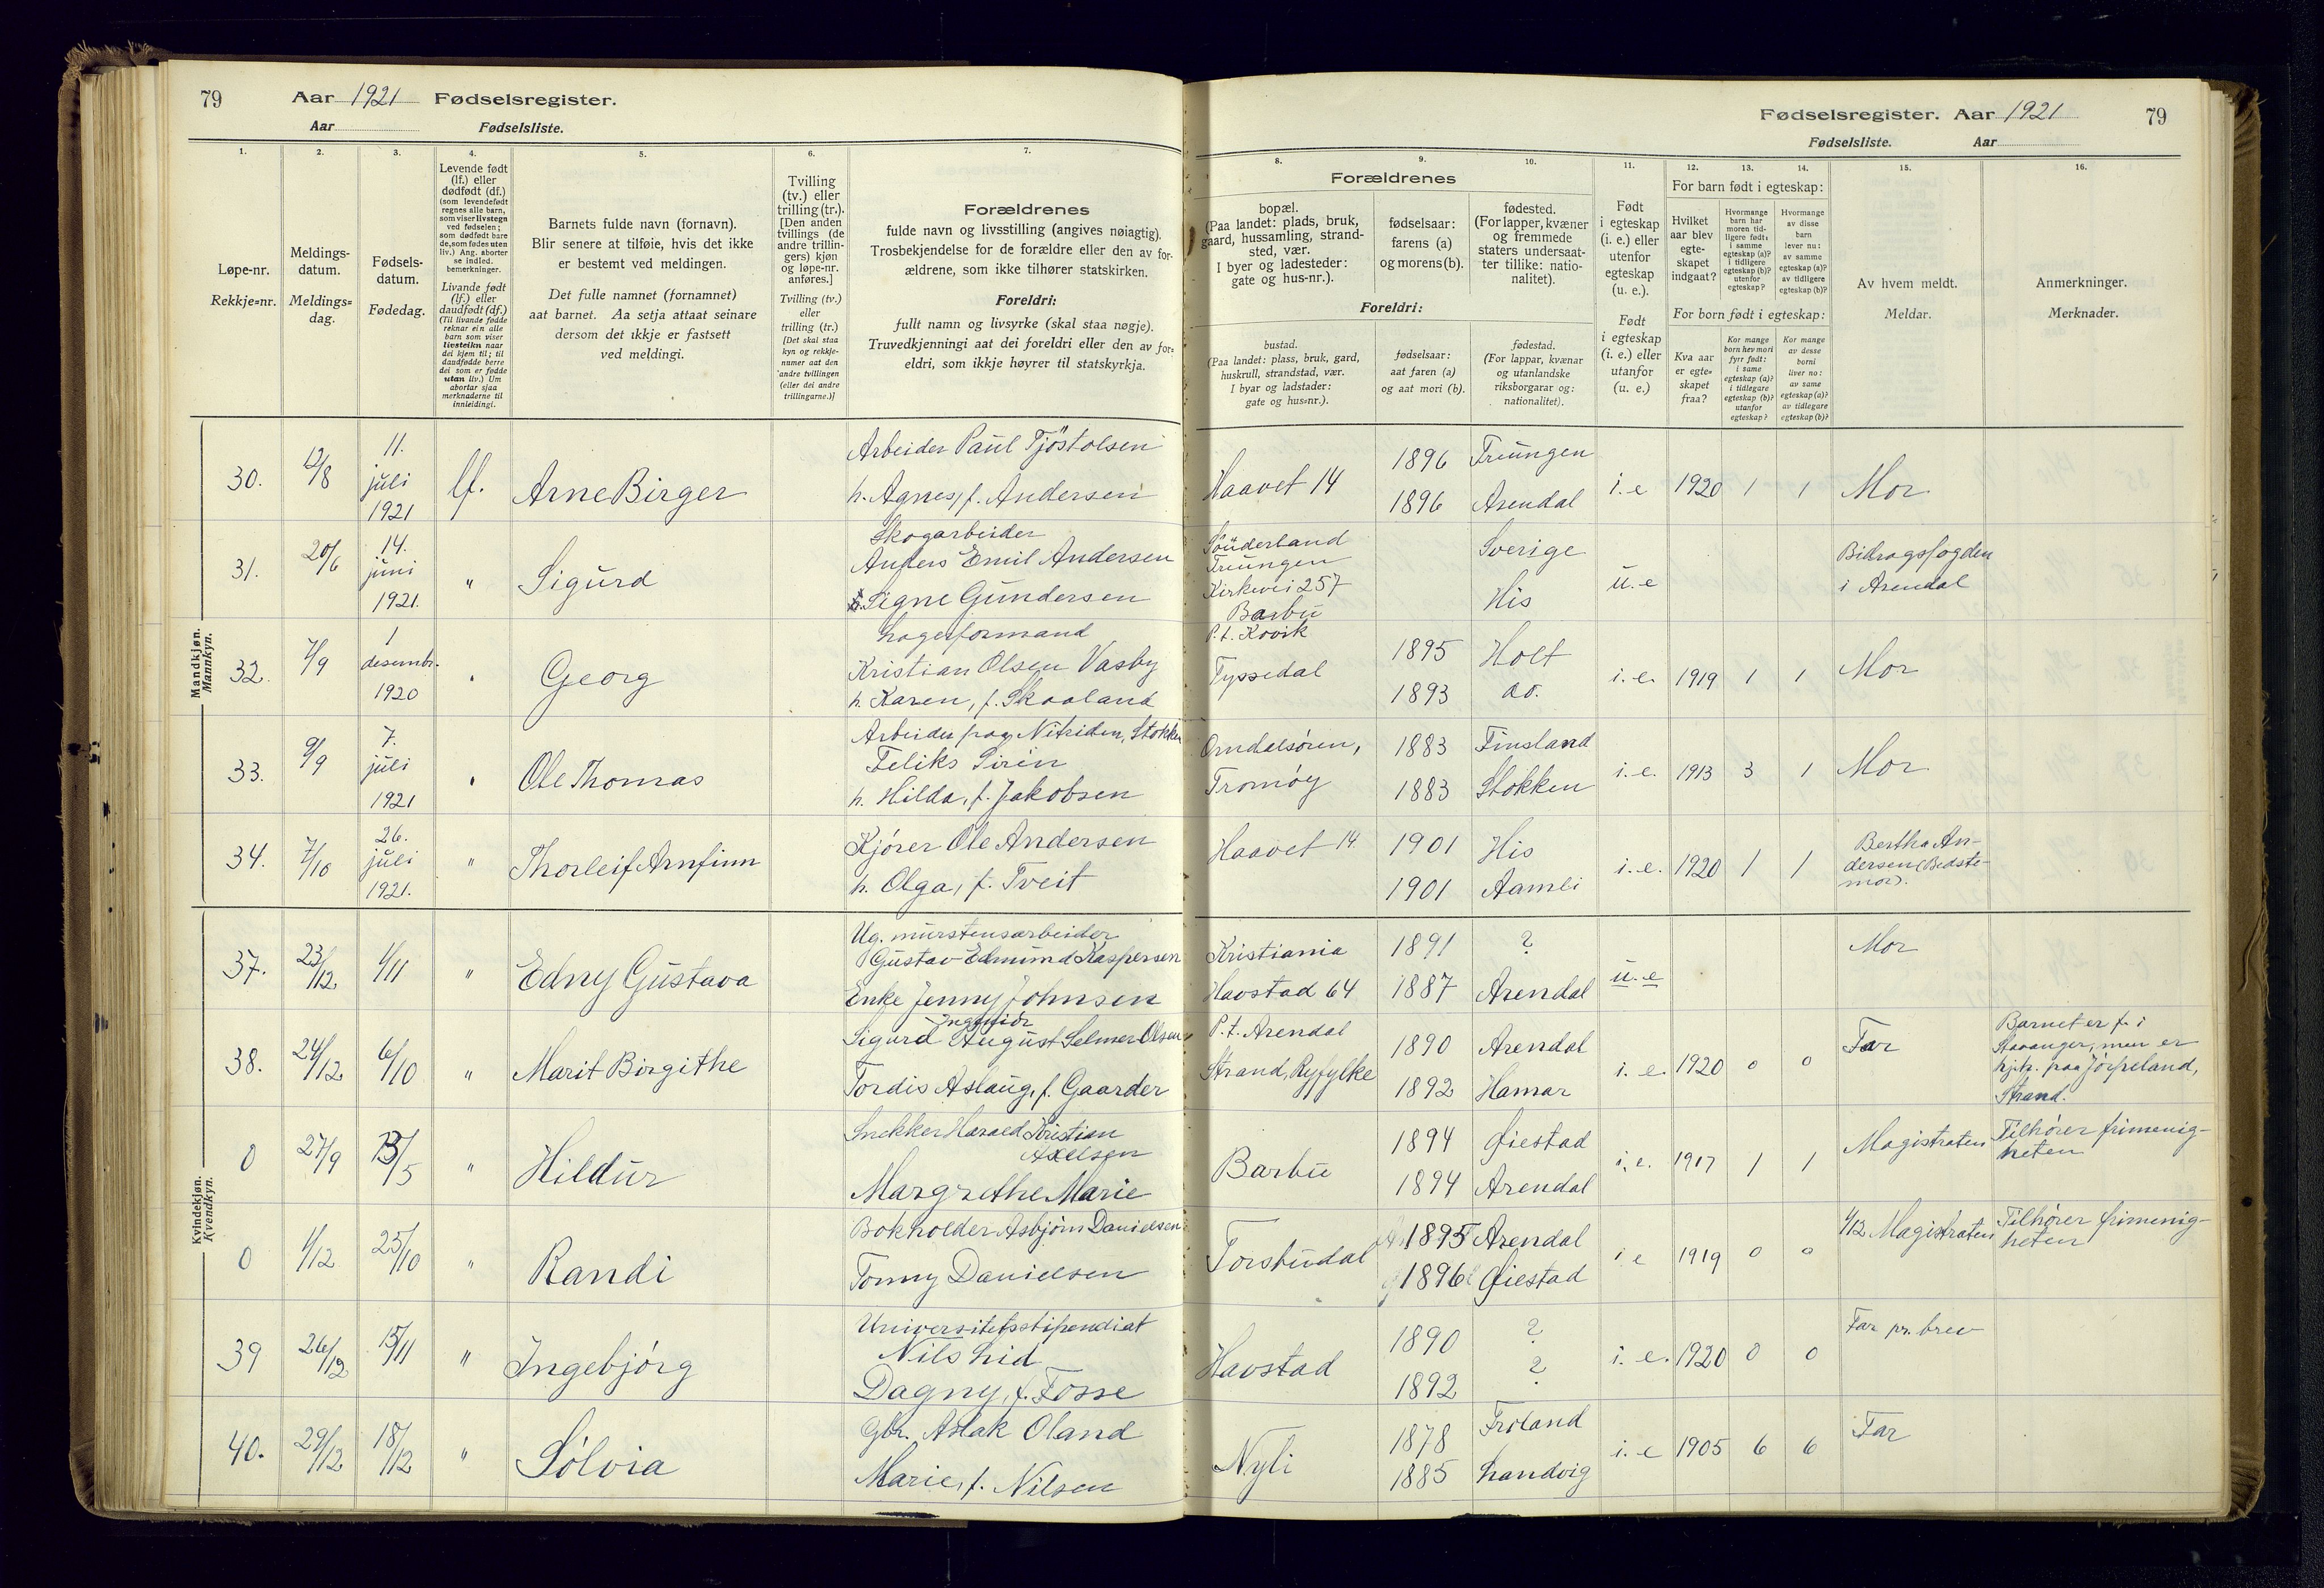 79
Aar 1921 Fødselsregister.
Aar Fødselsliste.
Fødselsregister. Aar 1921
79
Fødselsliste. Aar
1.
2.
3.
4.
5.
6.
7.
8.
9.
10.
11.
12.
13.
14.
15.
16.
Løpe-nr.
Rekkje=nr.
Meldings-
datum.
Meldings=
dag.
Fødsels-
datum.
Fødedag.
Levende født
(lf.) eller
dødfødt (df.)
(som levendefødt
regnes alle barn,
som viser livstegn
ved fødselen;
som dødfødt bare
de, som fødes uten
liv.) Ang. aborter
se indled.
bemerkninger.
Livande født
(lf.) eller
daudfødt (df.)
(Til livande fødde
reknar ein alle
barn som viser
livsteikn naar
dei kjem til; til
daudfødde berre
dei som er fødde
utan liv.) Um
abortar sjaa
merknaderne til
innleidingi.
Barnets fulde navn (fornavn).
Blir senere at tilføie, hvis det ikke
er bestemt ved meldingen.
Det fulle namnet (fornamnet)
aat barnet. Aa setja attaat seinare
dersom det ikkje er fastsett
ved meldingi.
Tvilling
(tv.) eller
trilling (tr.).
[Den anden
tvillings (de
andre trillin-
gers) kjøn
og løpe-nr.
anføres.]
Tvilling (tv.)
eller
trilling (tr.)
[Det skal staa
kyn og rekkje-
numer aat den
andre tvillingen
(eller dei andre
trillingarne.)]
Forældrenes
fulde navn og livsstilling (angives nøiagtig).
Trosbekjendelse for de forældre eller den av for-
ældrene, som ikke tilhører statskirken.
Foreldri:
fullt namn og livsyrke (skal staa nøgje).
Truvedkjenningi aat dei foreldri eller den av for=
eldri, som ikkje høyrer til statskyrkja.
Forældrenes
bopæl.
(Paa landet: plads, bruk,
gaard, hussamling, strand-
sted, vær.
I byer og ladesteder:
gate og hus-nr.).
fødselsaar:
farens (a)
og morens (b).
fødested.
(For lapper, kvæner
og fremmede
staters undersaat-
ter tillike: natio-
nalitet).
Foreldri:
bustad.
(Paa landet: plass, bruk, gard,
huskrull, strandstad, vær.
I byar og ladstader:
gate og hus=nr.).
fødselsaar:
aat faren (a)
og aat mori (b).
fødestad.
(For lappar, kvænar
og utanlandske
riksborgarar og:
nationalitet).
Født
i egteskap
(i. e.) eller
utenfor
egteskap
(u. e.).
Født
i egteskap
(i. e.) eller
utanfor
(u. e.)
For barn født i egteskap:
Hvilket
aar blev
egte-
skapet
indgaat?
Hvormange
barn har
moren tid-
ligere født:
i samme
egteskap (a)?
i tidligere
egteskap (b)?
utenfor
egteskap?
Hvormange
av disse
barn
lever nu:
av samme
egteskap (a)?
av tidligere
egteskap (b)?
For born født i egteskap:
Kva aar
er egte=
skapet
fraa?
Kor mange
born hev mori
fyrr født:
i same
egteskap (a)?
i tidlegare
egteskap (b)?
utanfor
egteskap?
Kor mange
av desse
borni
liver no:
av same
egteskap (a)?
av tidlegare
egteskap (b)?
Av hvem meldt.
Meldar.
Anmerkninger.
Merknader.
Mandkjøn.
Mannkyn.
30. 12/8 11. juli 1921 lf. Arne Birger
Arbeider Paul Tjöstolsen
h. Agnes, f. Andersen
Haavet 14 1896 Treungen
1896 Arendal
i.e 1920 1 1 Mor
31. 20/6 14. juni 1921. " Sigurd
Skogarbeider
Anders Emil Andersen
Signe Gundersen
Treungen
Kirkevei 257
Barbu
Sverige
His
u.e
Bidragsfogden
i Arendal
32. 7/9 1 desembr. 1920 " Georg
Lagerformand
Kristian Olsen Vasby
h. Karen, f. Skaaland
P.t. Kovik
Tyssedal
1895 Holt
1893 do.
i.e. 1919 1 1 Mor
33. 9/9 7. juli 1921 " Ole Thomas
Arbeider paa Nitriden, Stokken
Feliks Sirin
h. Hilda, f. Jakobsen
Omdalsøren,
Tromøy
1883 Finsland
1883 Stokken
i.e. 1913 3 1 Mor
34. 7/10 26. juli 1921. " Thorleif Arnfinn
Kjører Ole Andersen
h. Olga, f. Tveit
Haavet 14. 1901 His
1901 Aamli
i.e. 1920 1 1
Bertha An-
dersen (Bedste-
mor).
Kvindekjøn.
Kvendkyn.
37. 23/12 1/11 " Edny Gustava
Ug. murstensarbeider
Gustav Edmund Kaspersen
Enke Jenny Johnsen
Kristiania 1891 ?
Havstad 64 1887 Arendal
u.e
Mor
38. 24/12 6/10 " Marit Birgithe
Ingeniör
Sigurd August Selmer Olsen
Tordis Aslaug, f. Gaarder
P.t. Arendal
Strand, Ryfylke
1890 Arendal
1892 Hamar
i.e. 1920 0 0 Far
Barnet er f. i
Stavanger, men er
hj.h. paa Jørpeland,
Strand.
0 27/9 13/5 " Hildur
Snekker Harald Kristian
Axelsen
Margrethe Marie
Barbu
1894 Øiestad
1894 Arendal
i.e. 1917 1 1 Magistraten
Tilhører frimenig-
heten
0 1/12 25/10 " Randi
Bokholder Asbjörn Danielsen
Tonny Danielsen
Torsbudal
1895 Arendal
1896 Øiestad
i e 1919 0 0 1/12 Magistraten
Tilhører frimenig-
heten
39 26/12 15/11 " Ingebjørg
Universitetsstipendiat
Nils Lid
Dagny, f. Fosse
Havstad
1890 ?
1892 ?
i.e. 1920 0 0 Far pr. brev
40. 29/12 18/12 " Sølvia
Gbr. Aslak Oland
Marie, f. Nilsen
Nyli
1878 Froland
1885 Landvig
i.e 1905 6 6 Far